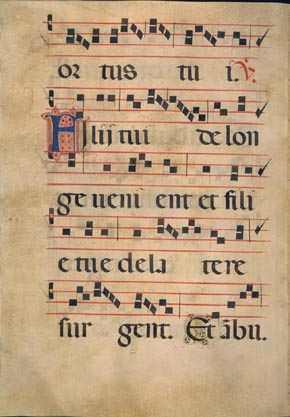 or tus tu i. ℣.
Filij tui de lon
ge ueni ent et fili
e tue de la tere
sur gent. Et ābu.